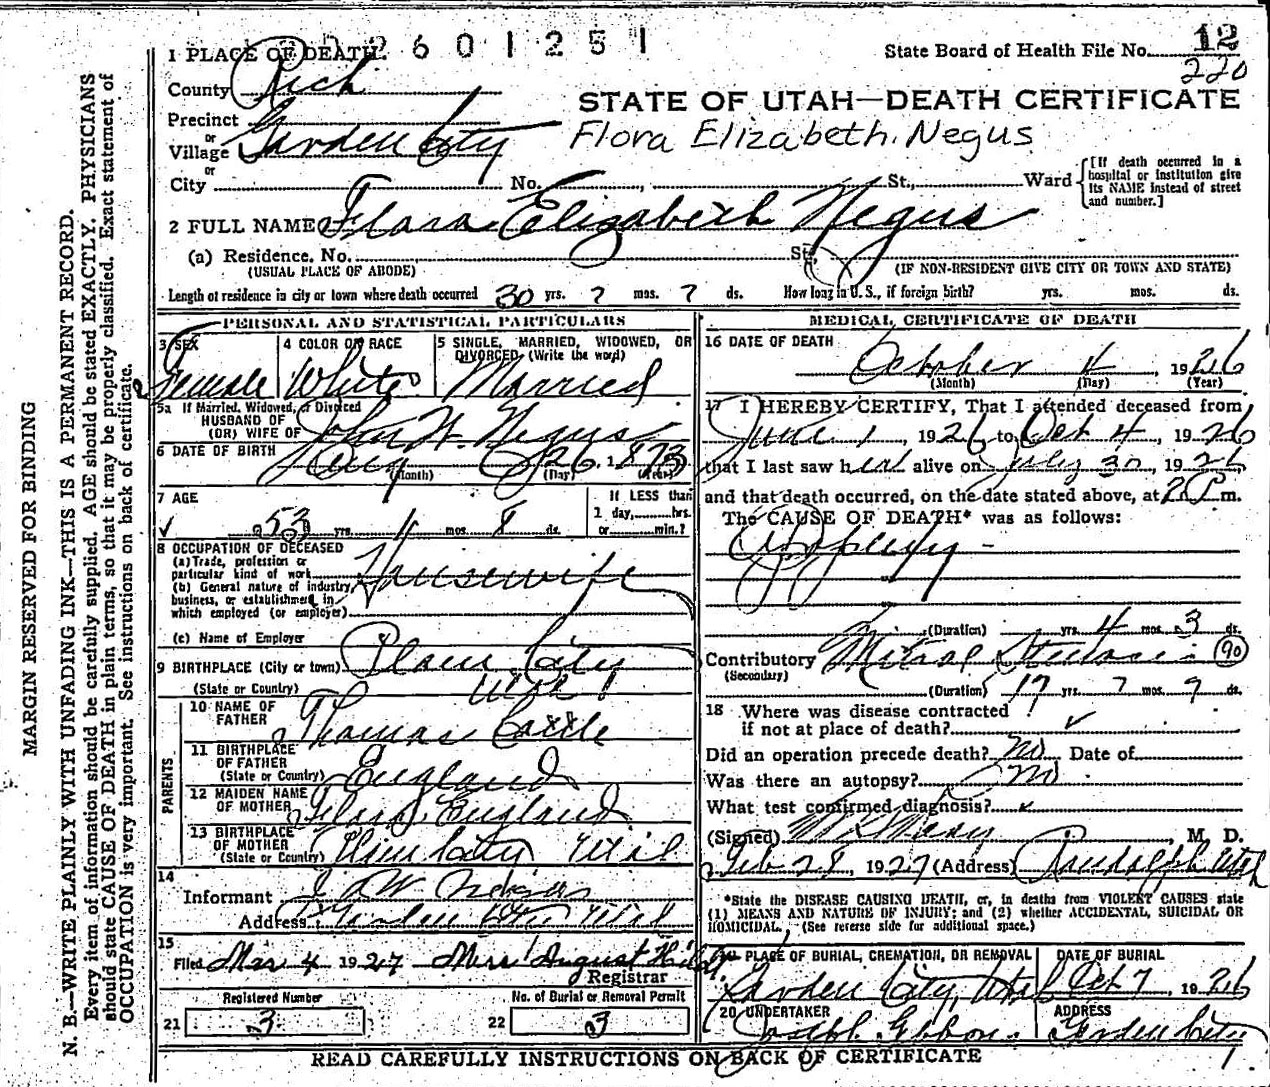 2 6 0 1 2 5 1
1 PLACE OF DEATH.
State Board of Health File No. 12
220
County Rich
STATE OF UTAH—DEATH CERTIFICATE
Precinct
or
Village Garden City
Flora Elizabeth. Negus
or
City No. , St., Ward
[If death occurred in a
hospital or institution give
its NAME instead of street
and number.]
2 FULL NAME Flora Elizabeth Negus
(a) Residence. No. St,
(USUAL PLACE OF ABODE) (IF NON-RESIDENT GIVE CITY OR TOWN AND STATE)
Length of residence in city or town where death occurred 30 yrs. 7 mos. 7 ds. How long in U. S., if foreign birth? yrs. mos. ds.
PERSONAL AND STATISTICAL PARTICULARS
3 SEX
Female
4 COLOR OR RACE
White
5 SINGLE, MARRIED, WIDOWED, OR
DIVORCED (Write the word)
Married
5a If Married, Widowed, or Divorced
HUSBAND OF
(OR) WIFE OF John W. Negus
6 DATE OF BIRTH Aug 26, 1873
(Month) (Day) (Year)
7 AGE
53 yrs. 1 mos. 8 ds.
If LESS than
1 day, hrs.
or min.?
8 OCCUPATION OF DECEASED
(a) Trade, profession or
particular kind of work Housewife
(b) General nature of industry,
business, or establishment in
which employed (or employer)
(c) Name of Employer
9 BIRTHPLACE (City or town) Plain City
(State or Country) Utah
PARENTS
10 NAME OF
FATHER Thomas Cattle
11 BIRTHPLACE
OF FATHER
(State or Country) England
12 MAIDEN NAME
OF MOTHER Flora England
13 BIRTHPLACE
OF MOTHER
(State or Country) Plain City Utah
14
Informant J W Negus
Address Garden City Utah
15
Filed Mar 4 1927 Mrs August
Registrar
Registered Number
21 3
No. of Burial or Removal Permit
22 3
MEDICAL CERTIFICATE OF DEATH
16 DATE OF DEATH
October 4, 1926
(Month) (Day) (Year)
17 I HEREBY CERTIFY, That I attended deceased from
June 1, 1926, to Oct 4, 1926
that I last saw her alive on July 30, 1926
and that death occurred, on the date stated above, at 2 P m.
The CAUSE OF DEATH* was as follows:
Apoplexy -
(Duration) yrs. 4 mos. 3 ds.
Contributory Mitral Stenosis 90
(Secondary)
(Duration) 17 yrs. 7 mos. 9 ds.
18 Where was disease contracted
if not at place of death?
Did an operation precede death? No Date of
Was there an autopsy? No
What test confirmed diagnosis?
(Signed) , M. D.
Feb 28, 1927 (Address) Randolph Utah
*State the DISEASE CAUSING DEATH, or, in deaths from VIOLENT CAUSES state
(1) MEANS AND NATURE OF INJURY; and (2) whether ACCIDENTAL, SUICIDAL OR
HOMICIDAL. (See reverse side for additional space.)
19 PLACE OF BURIAL, CREMATION, OR REMOVAL
Garden City, Utah
DATE OF BURIAL
Oct 7, 1926
20 UNDERTAKER
Joseph Gibbons
ADDRESS
Garden City
READ CAREFULLY INSTRUCTIONS ON BACK OF CERTIFICATE
1
MARGIN RESERVED FOR BINDING
N. B.—WRITE PLAINLY WITH UNFADING INK—THIS IS A PERMANENT RECORD.
Every item of information should be carefully supplied. AGE should be stated EXACTLY. PHYSICIANS
should state CAUSE OF DEATH in plain terms, so that it may be properly classified. Exact statement of
OCCUPATION is very important. See instructions on back of certificate.